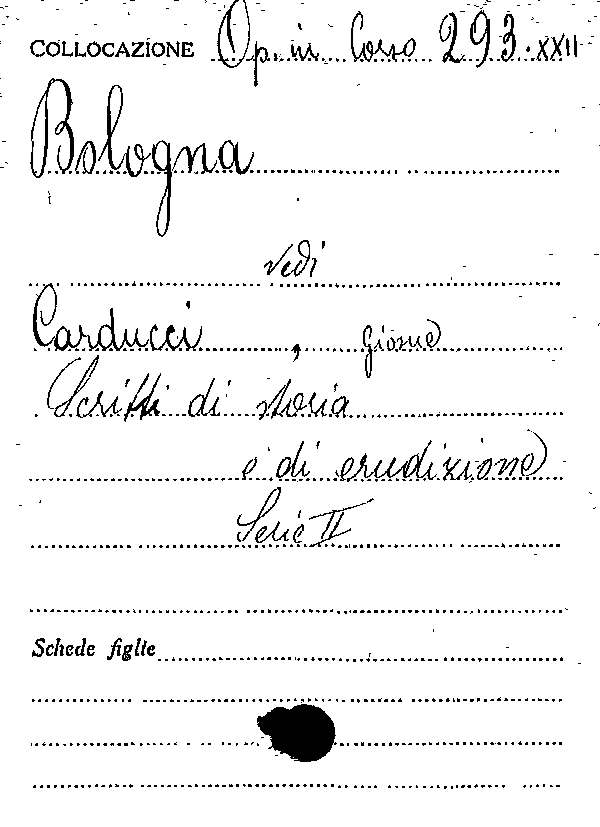 COLLOCAZIONE Op. in Corso 293.XXII
Bologna
vedi
Carducci, Giosue
Scritti di storia
e di erudizione
Serie II
Schede figlie